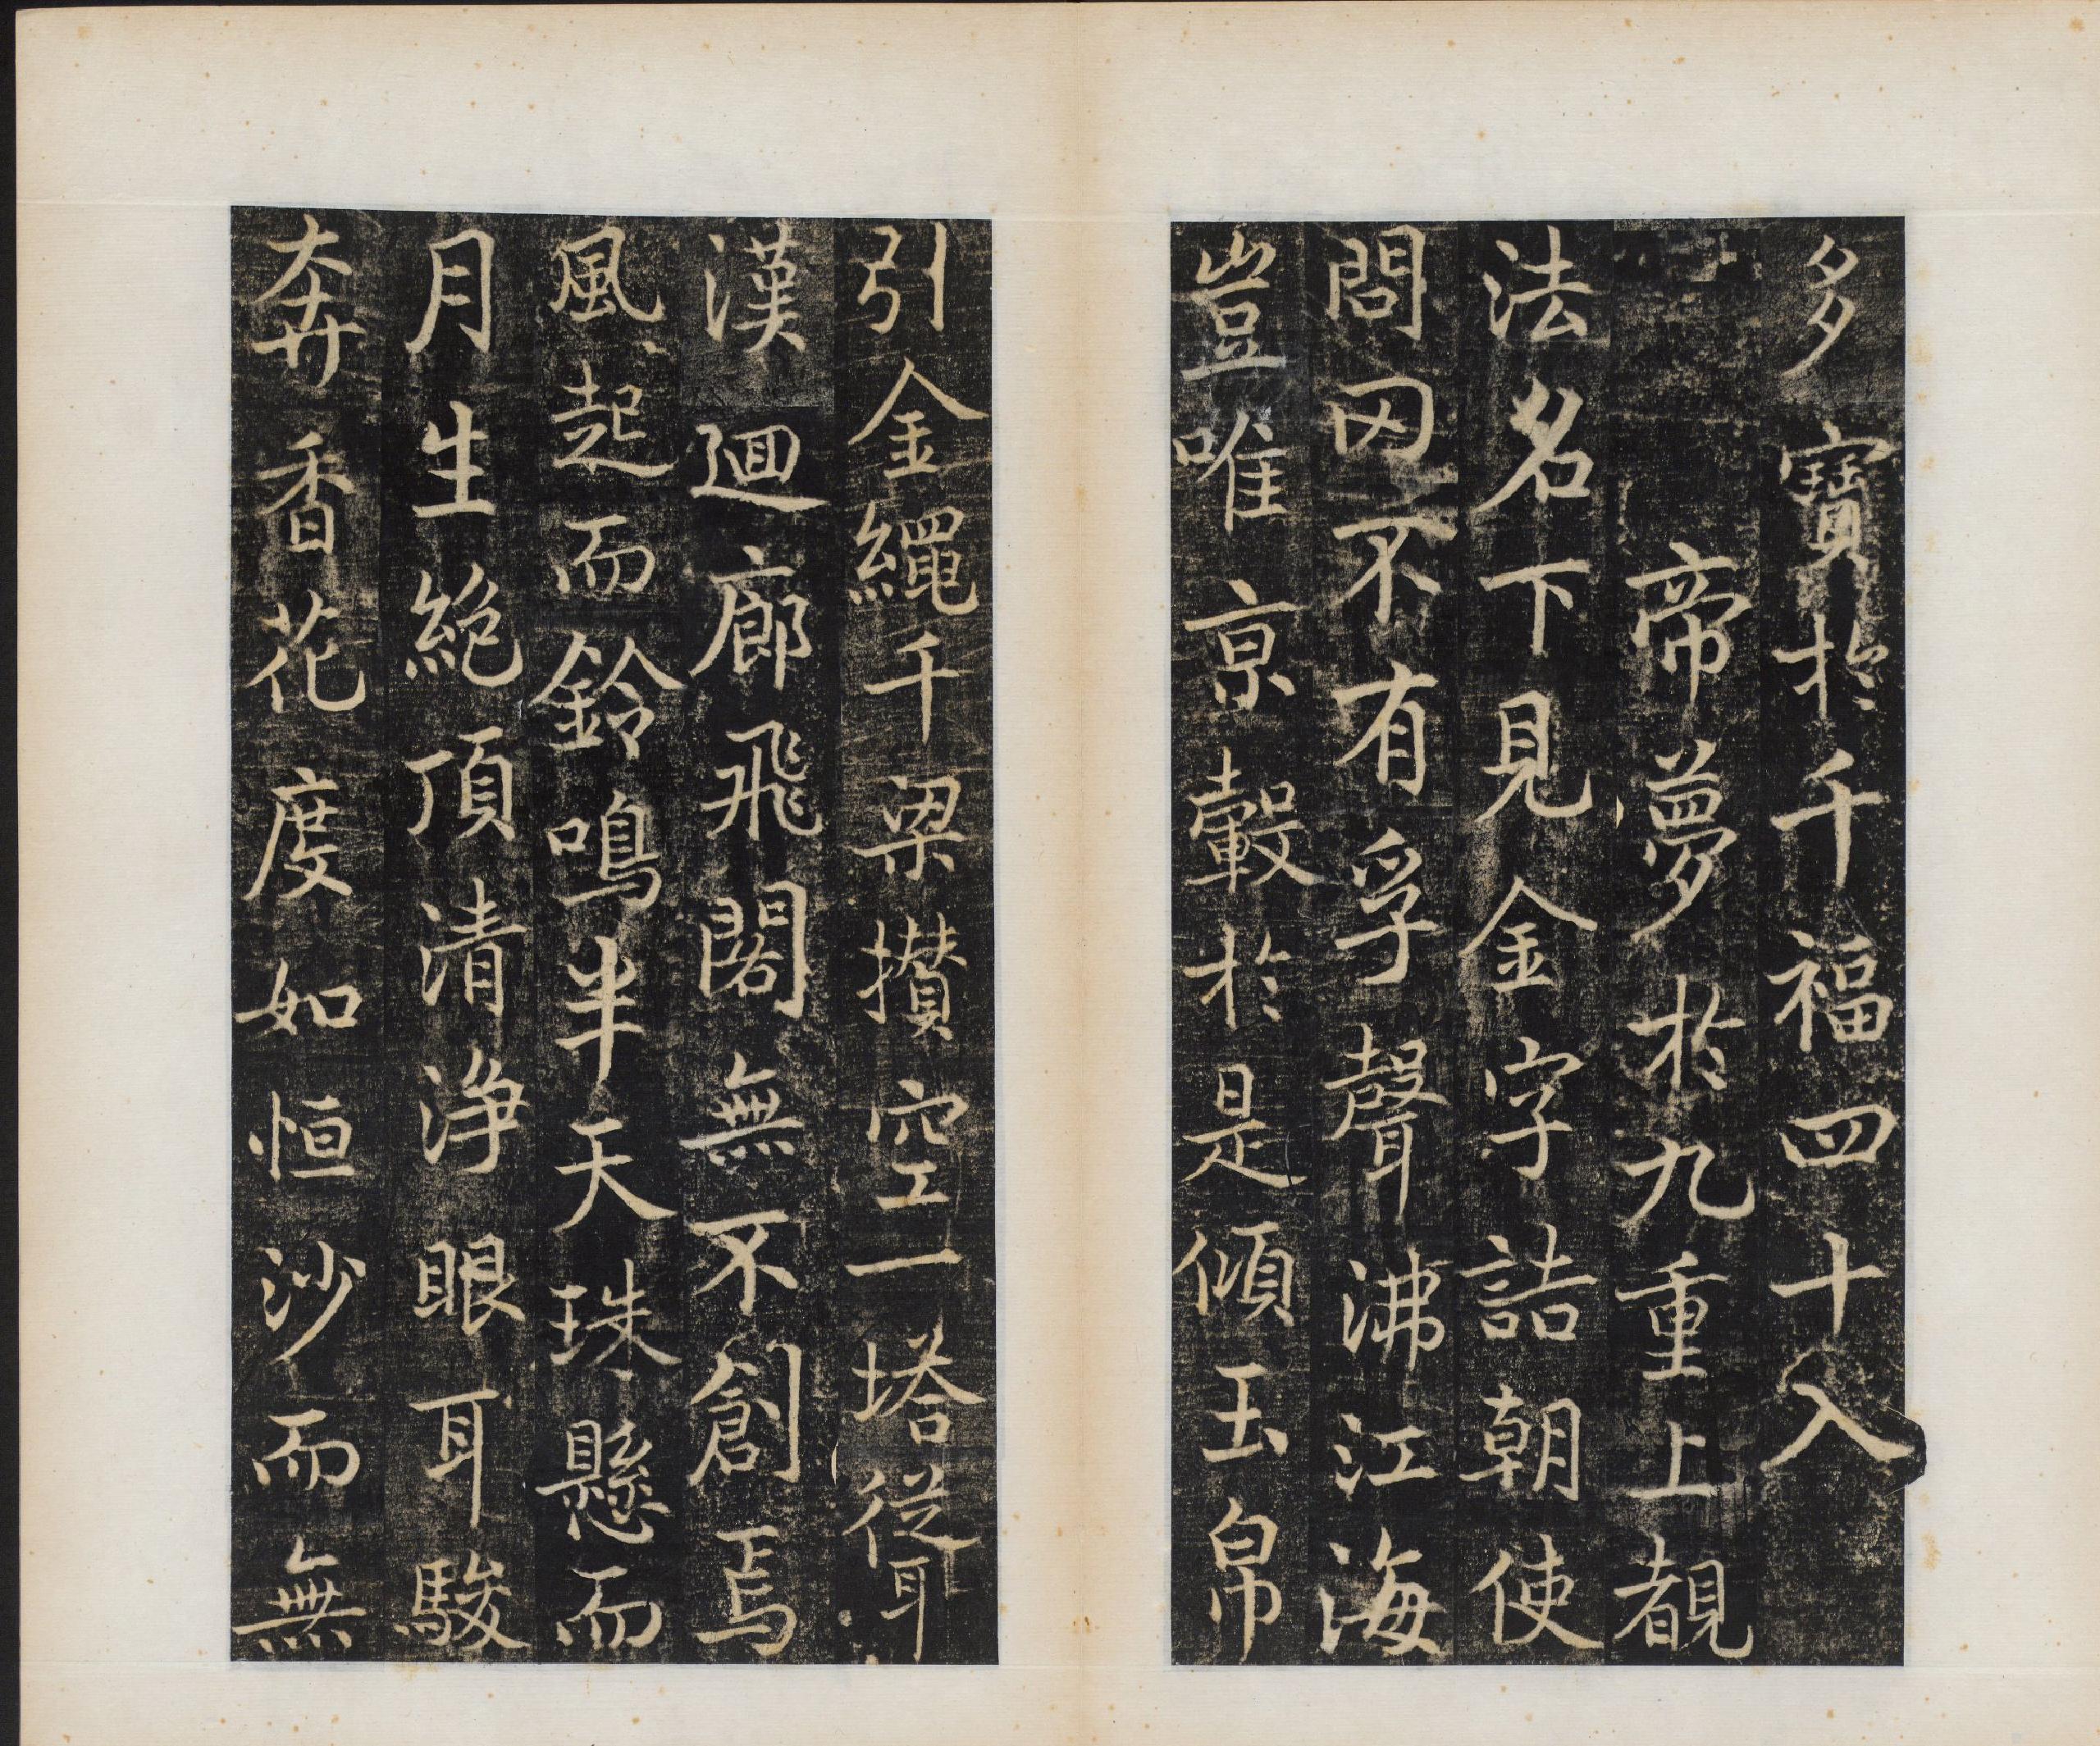 多寶於千福四十入
帝夢於九重上覩
法名下見金字詰朝使
問罔不有孚聲沸江海
豈唯京轂於是傾玉帛
引金繩千梁攢空一塔聳
漢迴廊飛閣無不創焉
風起而鈴鳴半天珠懸而
月生絕頂清淨眼耳駿
奔香花度如恒沙而無